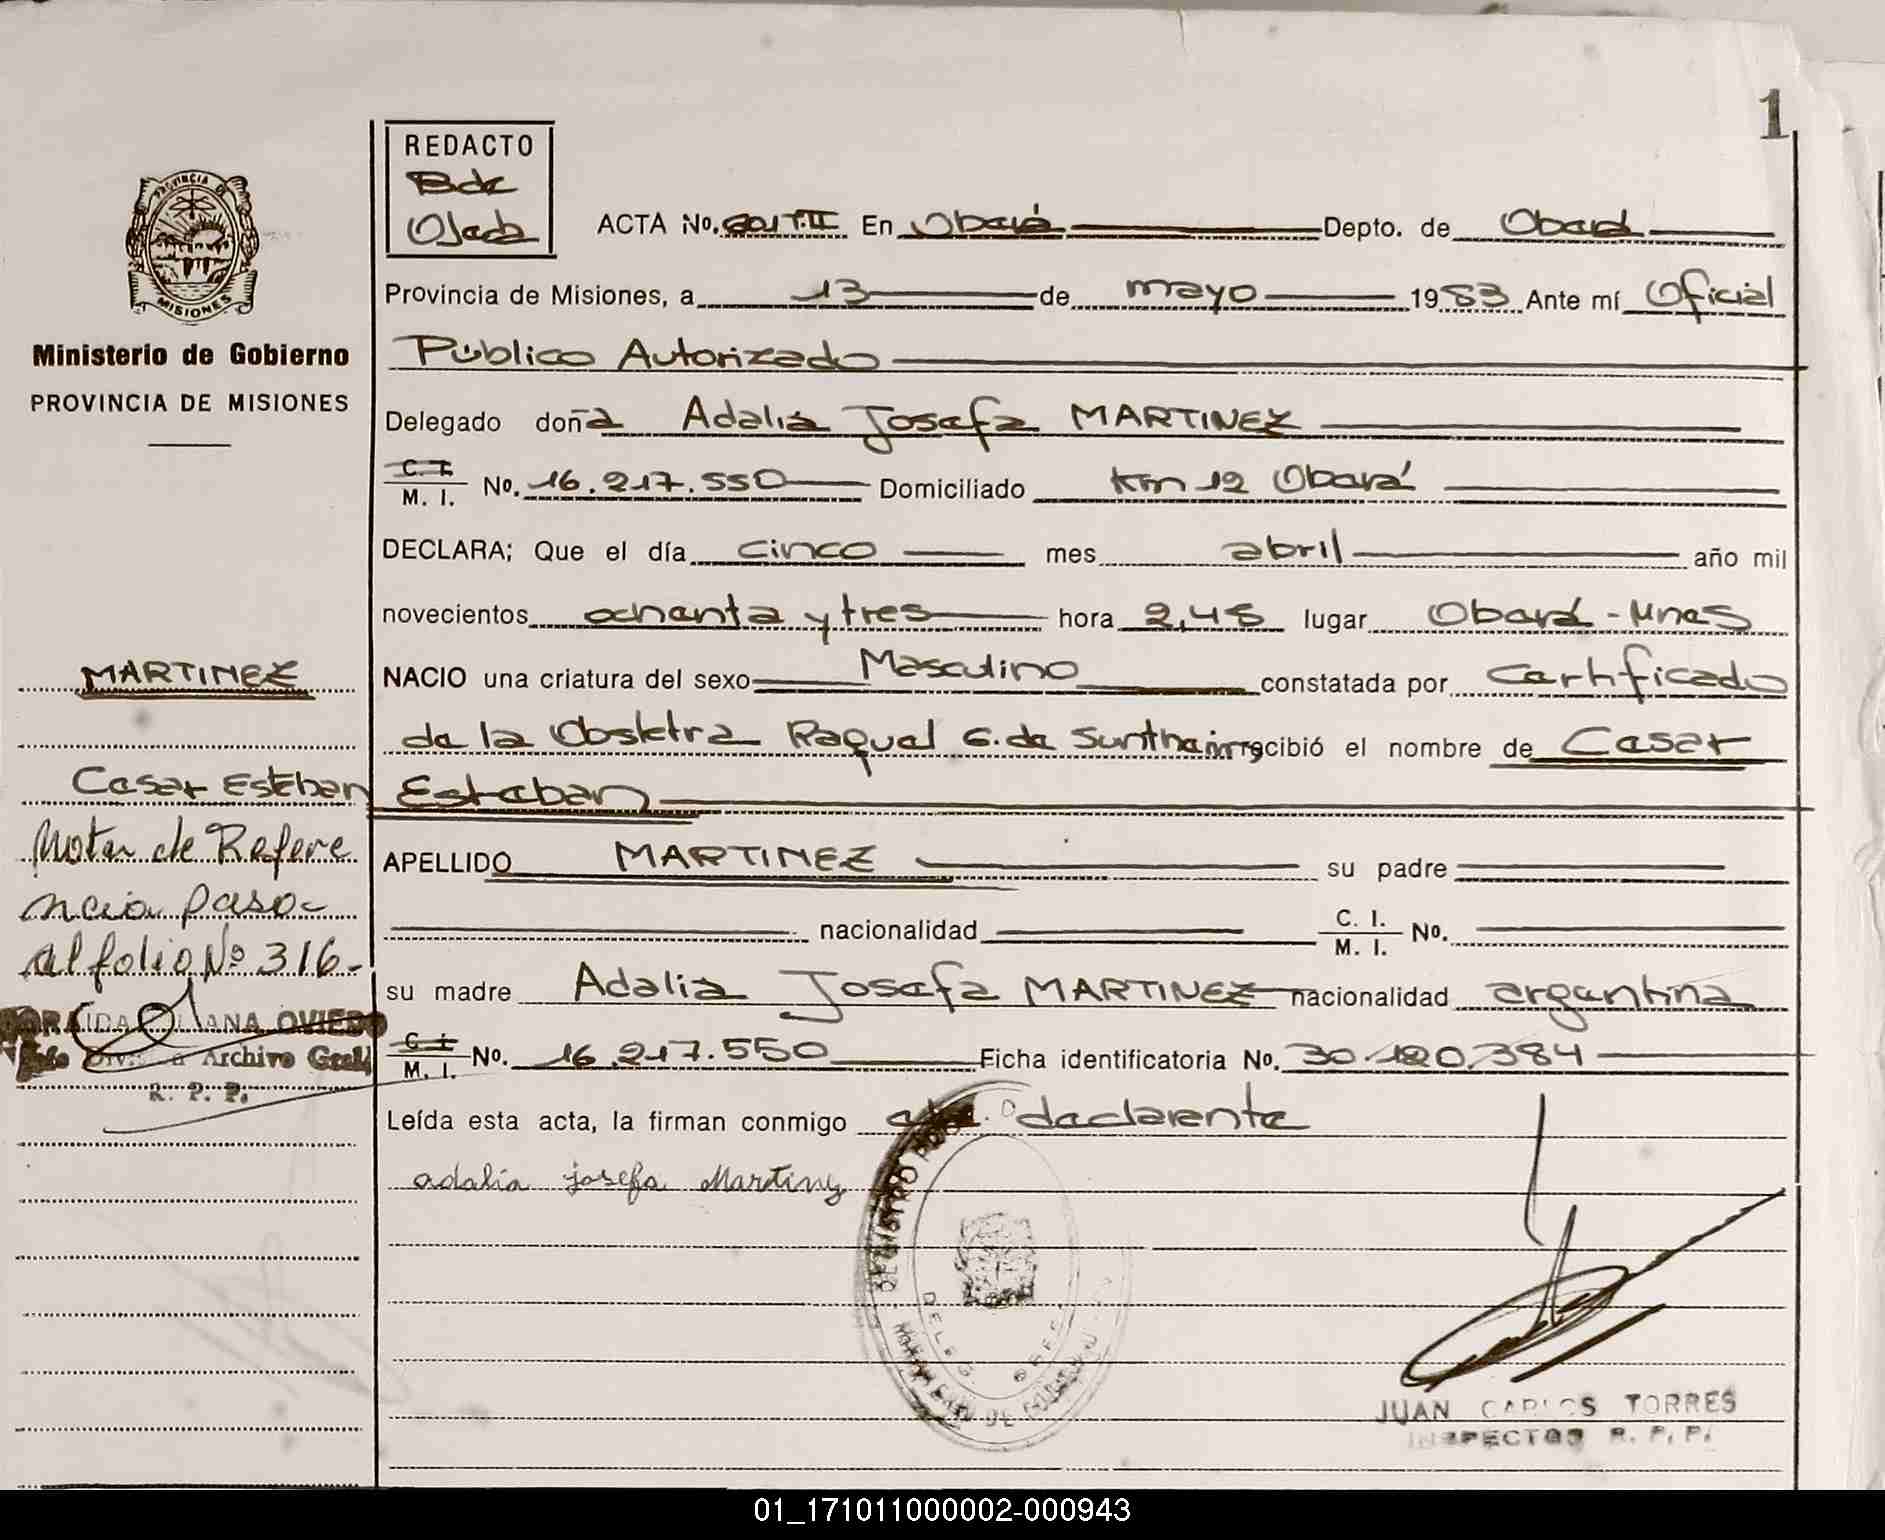 1
REDACTO
Bde
Ojeda
PROVINCIA DE
MISIONES
Ministerio de Gobierno
PROVINCIA DE MISIONES
ACTA No. 601 T.II En Oberá Depto. de Oberá
Provincia de Misiones, a 13 de mayo 1983 Ante mí Oficial
Público Autorizado
Delegado doña Adalia Josefa MARTINEZ
C. I.
M. I. No. 16.217.550 Domiciliado Km 12 Oberá
DECLARA; Que el día cinco mes abril año mil
novecientos ochenta y tres hora 2,45 lugar Oberá - Mnes
NACIO una criatura del sexo Masculino constatada por Certificado
de la Obstetra Raquel G. de recibió el nombre de Cesar
Esteban
APELLIDO MARTINEZ su padre
nacionalidad C. I.
M. I. No.
su madre Adalia Josefa MARTINEZ nacionalidad argentina
C. I.
M. I. No. 16.217.550 Ficha identificatoria No. 30.120.384
Leída esta acta, la firman conmigo declarente
adalia josefa Martinez
MARTINEZ
Cesar Esteban
Notas de Refere
ncia paso
al folio Nº 316-
OVIEDO
Archivo Gral
R. P. P.
DELEG.
JUAN CARLOS TORRES
INSPECTOR R. P. P.
01_171011000002-000943